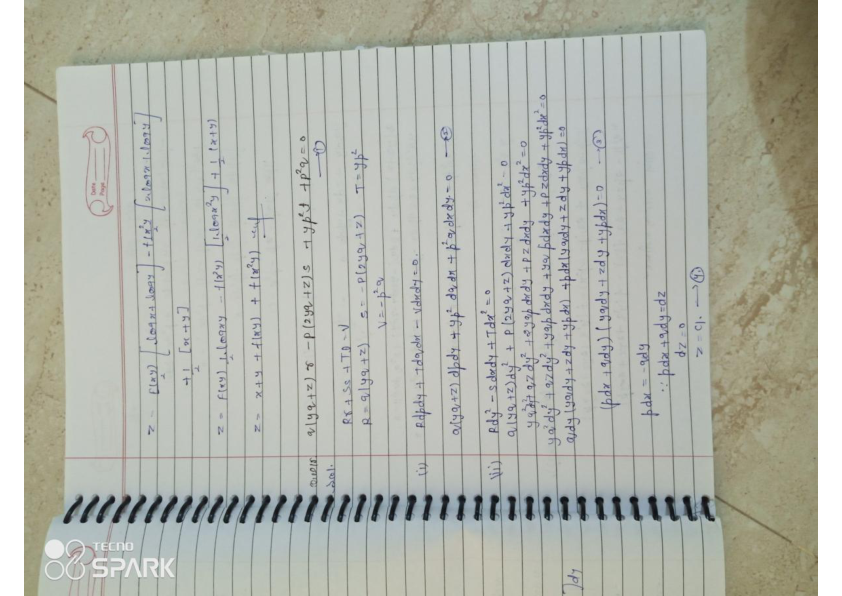 Date
Page
z = f(xy)/2 [logx + logy] - f(x²y)/2 [2logx + logy]
+ 1/2 [x+y]
z = f(xy) 1/2 logxy - f(x²y) [1/2 logx²y] + 1/2 (x+y)
z = x+y + f(xy) + f(x²y)
q(yq+z)r - p(2yq+z)s + yp²t + p²q = 0 —①
Sol.
Rr + Ss + Tt = V
R = q(yq+z) S = -p(2yq+z) T = yp²
V = -p²q
(i) Rdpdy + Tdqdx - Vdxdy = 0.
q(yq+z) dpdy + yp² dqdx + p²q dxdy = 0 —②
(ii) Rdy² - Sdxdy + Tdx² = 0
q(yq+z)dy² + p(2yq+z) dxdy + yp²dx² = 0
yq²dy² + qzdy² + 2yqp dxdy + pz dxdy + yp²dx² = 0
yq²dy² + qzdy² + yqp dxdy + yq pdxdy + pzdxdy + yp²dx² = 0
qdy(yqdy + zdy + ypdx) + pdx(yqdy + zdy + ypdx) = 0
(pdx + qdy)(yqdy + zdy + ypdx) = 0 —③
pdx = -qdy
∵ pdx + qdy = dz
dz = 0
z = c₁. →④
]dy
TECNO
SPARK